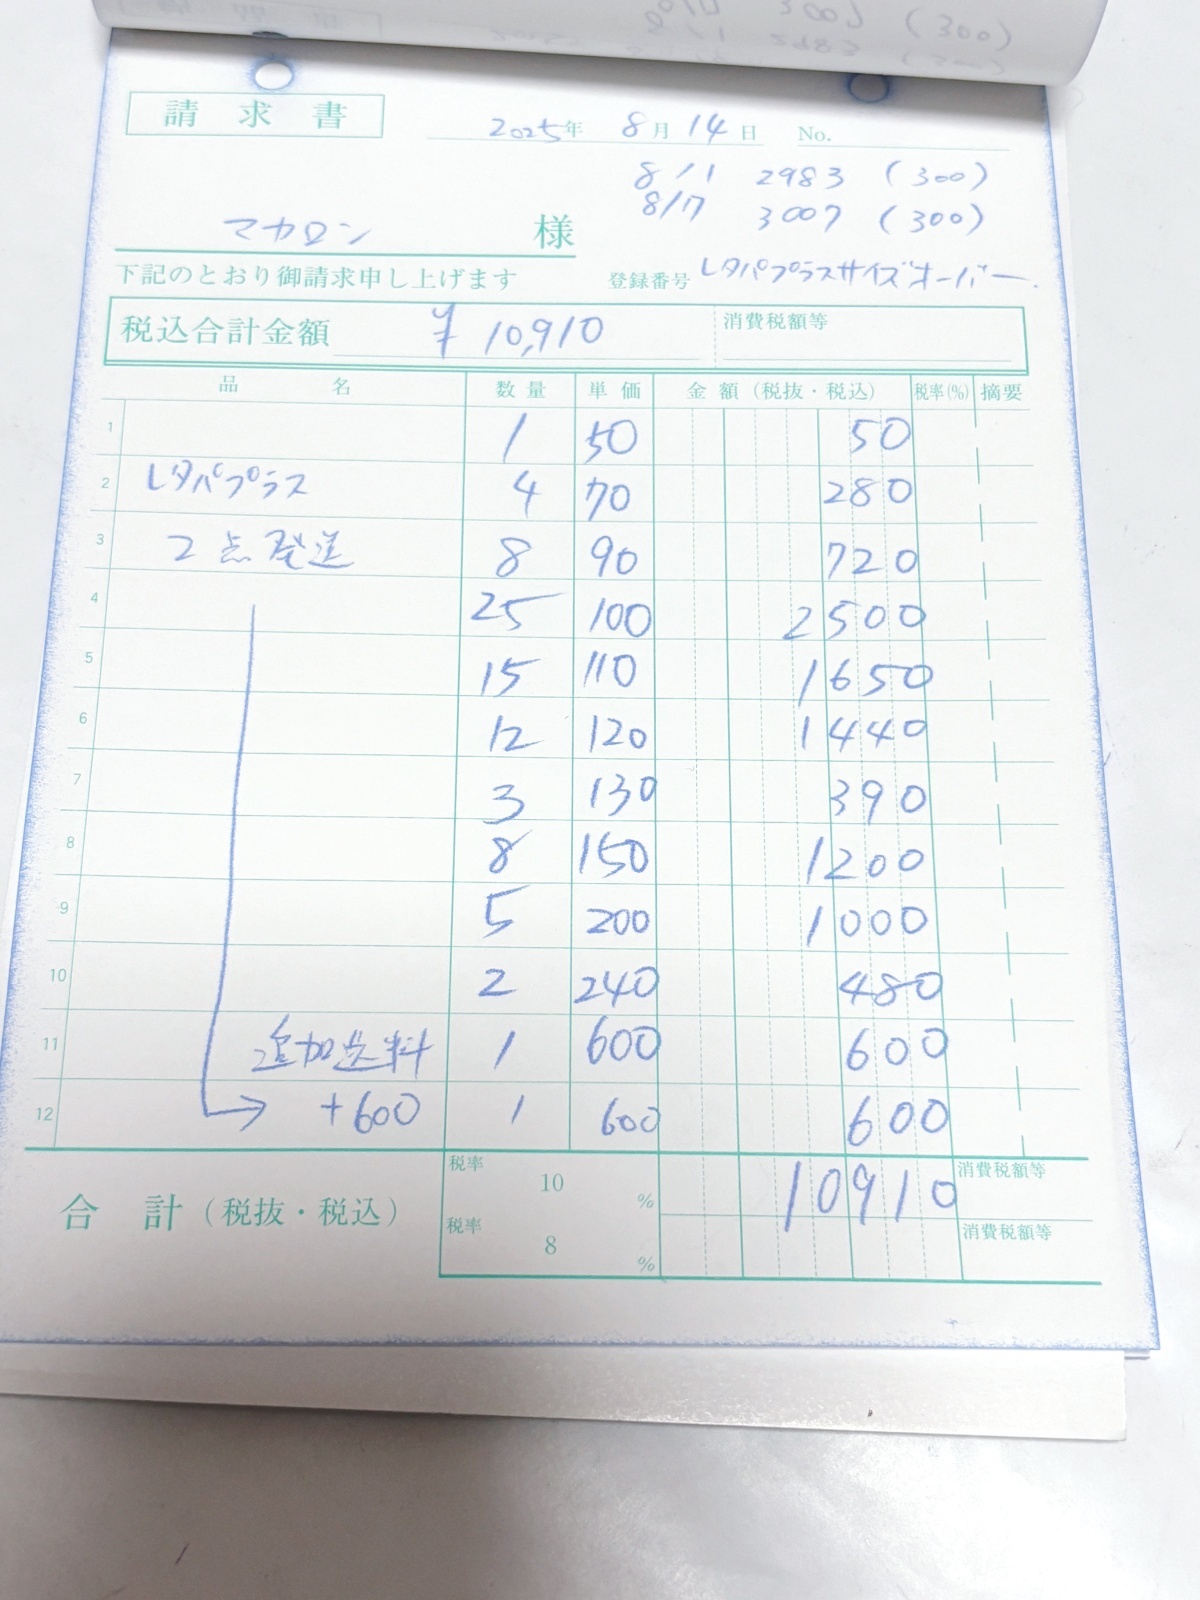 請求書
2025年 8月14日 No.
8/1 2983 (300)
8/17 3007 (300)
マカロン 様
下記のとおり御請求申し上げます
登録番号 レタパプラスサイズオーバー.
税込合計金額 ¥10,910 消費税額等
品名 数量 単価 金額(税抜・税込) 税率(%) 摘要
1 1 50 50
2 レタパプラス 4 70 280
3 2点発送 8 90 720
4 25 100 2500
5 15 110 1650
6 12 120 1440
7 3 130 390
8 8 150 1200
9 5 200 1000
10 2 240 480
11 追加送料 1 600 600
12 → +600 1 600 600
合計(税抜・税込) 税率 10 % 10910 消費税額等
税率 8 % 消費税額等